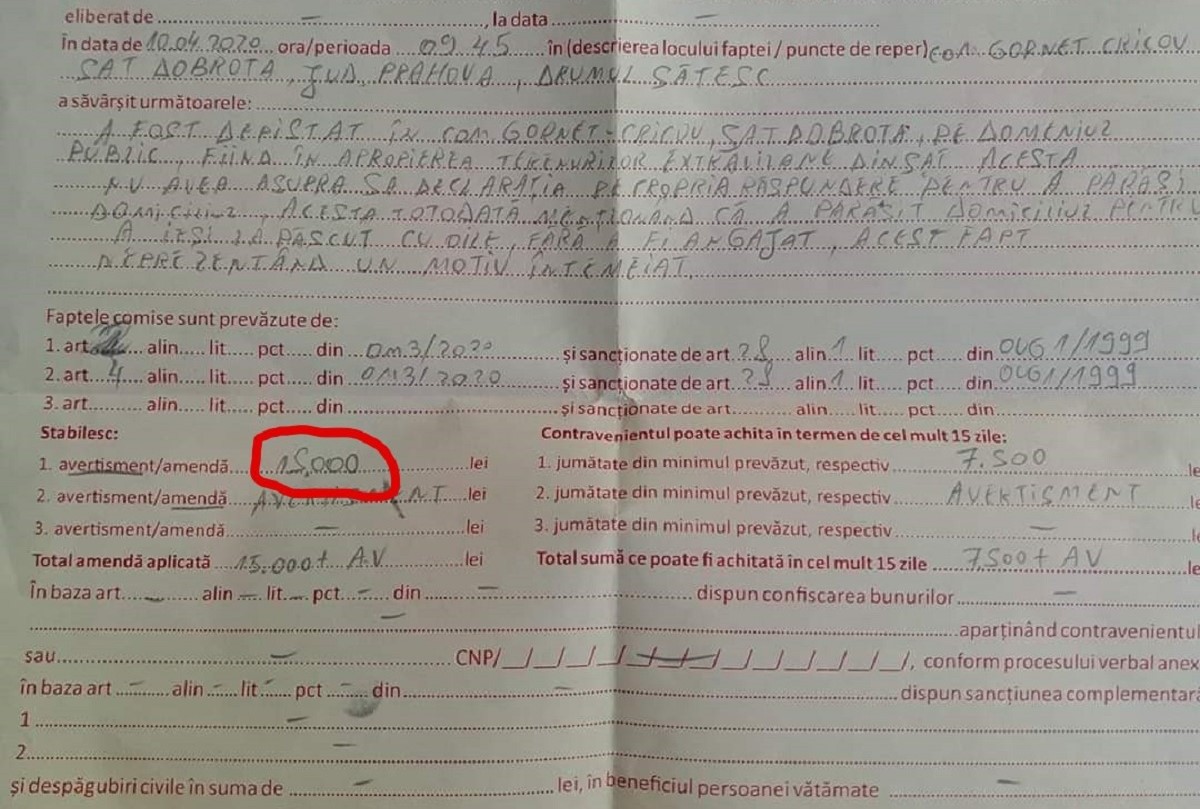 eliberat de – , la data –
În data de 10.04.2020 ora/perioada 09.45 în (descrierea locului faptei / puncte de reper) COM. GORNET CRICOV
SAT DOBROTA, JUD. PRAHOVA, DRUMUL SĂTESC
a săvârșit următoarele:
A FOST DEPISTAT ÎN COM. GORNET-CRICOV, SAT DOBROTA, PE DOMENIUL
PUBLIC, FIIND ÎN APROPIEREA TERENURILOR EXTRAVILANE DIN SAT ACESTA
NU AVEA ASUPRA SA DECLARAȚIA PE PROPRIA RĂSPUNDERE PENTRU A PĂRĂSI
DOMICILIUL, ACESTA TOTODATĂ MENȚIONÂND CĂ A PĂRĂSIT DOMICILIUL PENTRU
A IEȘI LA PĂSCUT CU OILE, FĂRĂ A FI ANGAJAT, ACEST FAPT
NEPREZENTÂND UN MOTIV ÎNTEMEIAT.
Faptele comise sunt prevăzute de:
1. art. alin. lit. pct. din OM3/2020 și sancționate de art. 28 alin. 1 lit. pct. din OUG 1/1999
2. art. 4 alin. lit. pct. din OM3/2020 și sancționate de art. 28 alin. 1 lit. pct. din OUG 1/1999
3. art. alin. lit. pct. din și sancționate de art. alin. lit. pct. din
Stabilesc: Contravenientul poate achita în termen de cel mult 15 zile:
1. avertisment/amendă 15.000 lei 1. jumătate din minimul prevăzut, respectiv 7.500 le
2. avertisment/amendă AVERTISMENT lei 2. jumătate din minimul prevăzut, respectiv AVERTISMENT le
3. avertisment/amendă – lei 3. jumătate din minimul prevăzut, respectiv – le
Total amendă aplicată 15.000 + AV lei Total sumă ce poate fi achitată în cel mult 15 zile 7.500 + AV le
În baza art. – alin – lit. – pct. – din – dispun confiscarea bunurilor –
– aparținând contravenientul
sau – CNP/__/__/__/__/__/__/__/__/__/__/__/__/__/, conform procesului verbal anex
în baza art – alin – lit – pct – din – dispun sancțiunea complementară
1 –
2. –
și despăgubiri civile în suma de – lei, în beneficiul persoanei vătămate –